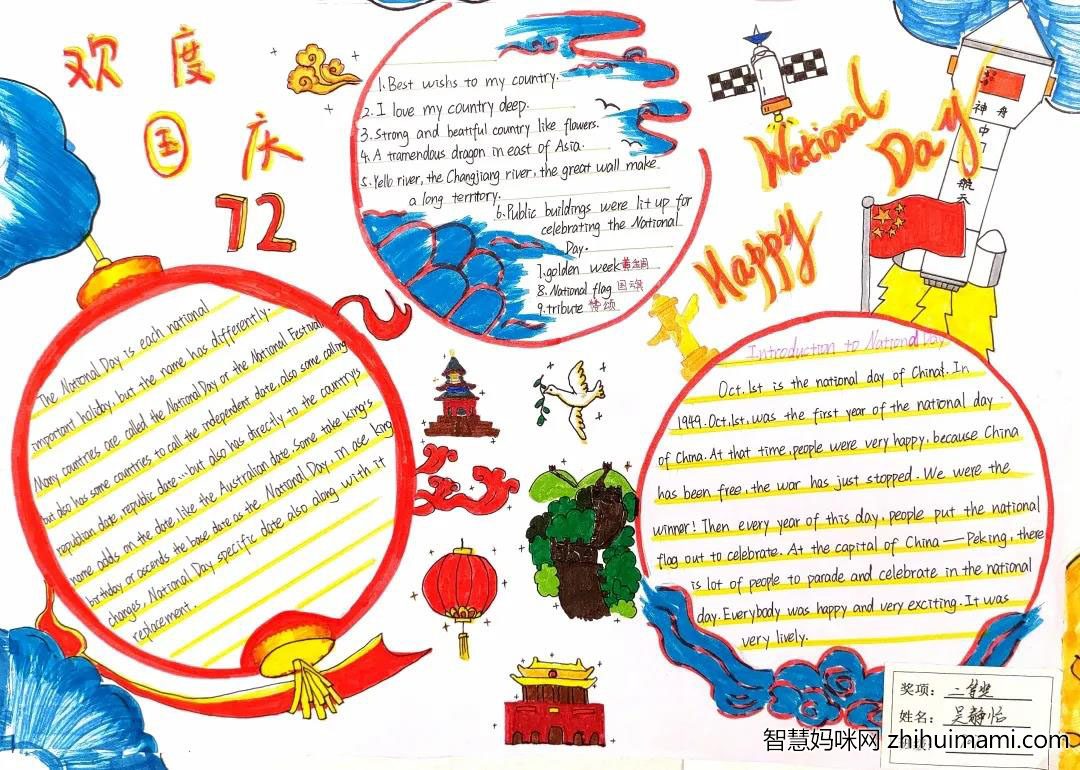 欢度
国庆
72
1.Best wishs to my country.
2.I love my country deep.
3.Strong and beatiful country like flowers.
4.A tramendous dragon in east of Asia.
5.Yello river, the Changjiang river, the great wall make
a long territory.
6.Public buildings were lit up for
celebrating the National
Day.
7.golden week 黄金周
8.National flag 国旗
9.tribute 赞颂
National
Day
Happy
神舟
中
航
天
The National Day is each national
important holiday, but the name has differently.
Many countries are called the National Day or the National Festival
but also has some countries to call the independent date, also some calling
republian date, republic date... but also has directly to the countrys
name adds on the date, like the Australian date, Some take king's
birthday or ascends the base date as the National Day, in ase king
changes, National Day specific date also along with it
replacement.
Introduction to National Day
Oct.1st is the national day of China!. In
1949.Oct.1st, was the first year of the national day
of China. At that time, people were very happy, because China
has been free, the war has just stopped. We were the
winner! Then every year of this day, people put the national
flag out to celebrate. At the capital of China — Peking, there
is lot of people to parade and celebrate in the national
day. Everybody was happy and very exciting. It was
very lively.
奖项: 二等奖
姓名: 吴静怡
智慧妈咪网 zhihuimami.com